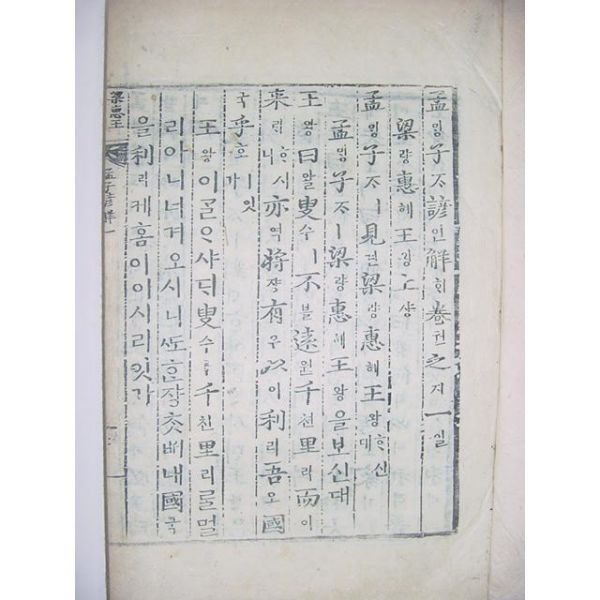 孟ᄆᆡᆼ子ᄌᆞ諺언解ᄒᆡ卷권之지一일
梁량惠혜王왕上샹
孟ᄆᆡᆼ子ᄌᆞㅣ見견梁량惠혜王왕ᄒᆞ신대
孟ᄆᆡᆼ子ᄌᆞㅣ梁량惠혜王왕을보신대
王왕曰왈叟수ㅣ不블遠원千쳔里리而이
来ᄅᆡᄒᆞ시니亦역將쟝有유以이利리吾오國
국乎호ㅣ잇가
王왕이ᄀᆞᆯᄋᆞ샤ᄃᆡ叟수ㅣ千쳔里리ᄅᆞᆯ멀
리아니너겨오시니ᄯᅩᄒᆞᆫ쟝ᄎᆞᆺᄡᅥ내國국
을利리케홈이이시리잇가
梁惠王
孟子諺解一